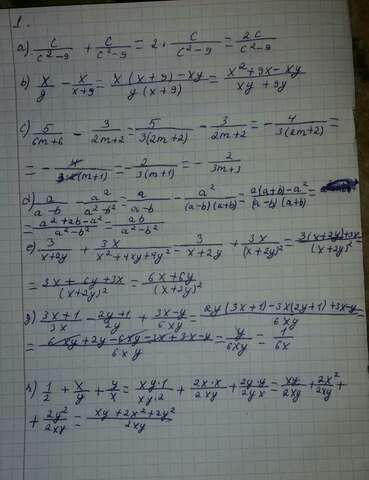 1.
a) c/(c²-9) + c/(c²-9) = 2 · c/(c²-9) = 2c/(c²-9)
b) x/y - x/(x+9) = (x(x+9)-xy)/(y(x+9)) = (x²+9x-xy)/(xy+9y)
c) 5/(6m+6) - 3/(2m+2) = 5/(3(2m+2)) - 3/(2m+2) = -4/(3(2m+2)) =
= - 4/(3·2(m+1)) = 2/(3(m+1)) = - 2/(3m+3)
d) a/(a-b) - a²/(a²-b²) = a/(a-b) - a²/((a-b)(a+b)) = (a(a+b)-a²)/((a-b)(a+b)) =
= (a²+ab-a²)/(a²-b²) = ab/(a²-b²)
e) 3/(x+2y) + 3x/(x²+4xy+4y²) = 3/(x+2y) + 3x/(x+2y)² = (3(x+2y)+3x)/(x+2y)² =
= (3x+6y+3x)/(x+2y)² = (6x+6y)/(x+2y)²
g) (3x+1)/3x - (2y+1)/2y + (3x-y)/6xy = (2y(3x+1)-3x(2y+1)+3x-y)/6xy =
= (6xy+2y-6xy-3x+3x-y)/6xy = y/6xy = 1/6x
h) 1/2 + x/y + y/x = (xy·1)/(xy·2) + (2x·x)/2xy + (2y·y)/2yx = xy/2xy + 2x²/2xy +
+ 2y²/2xy = (xy+2x²+2y²)/2xy